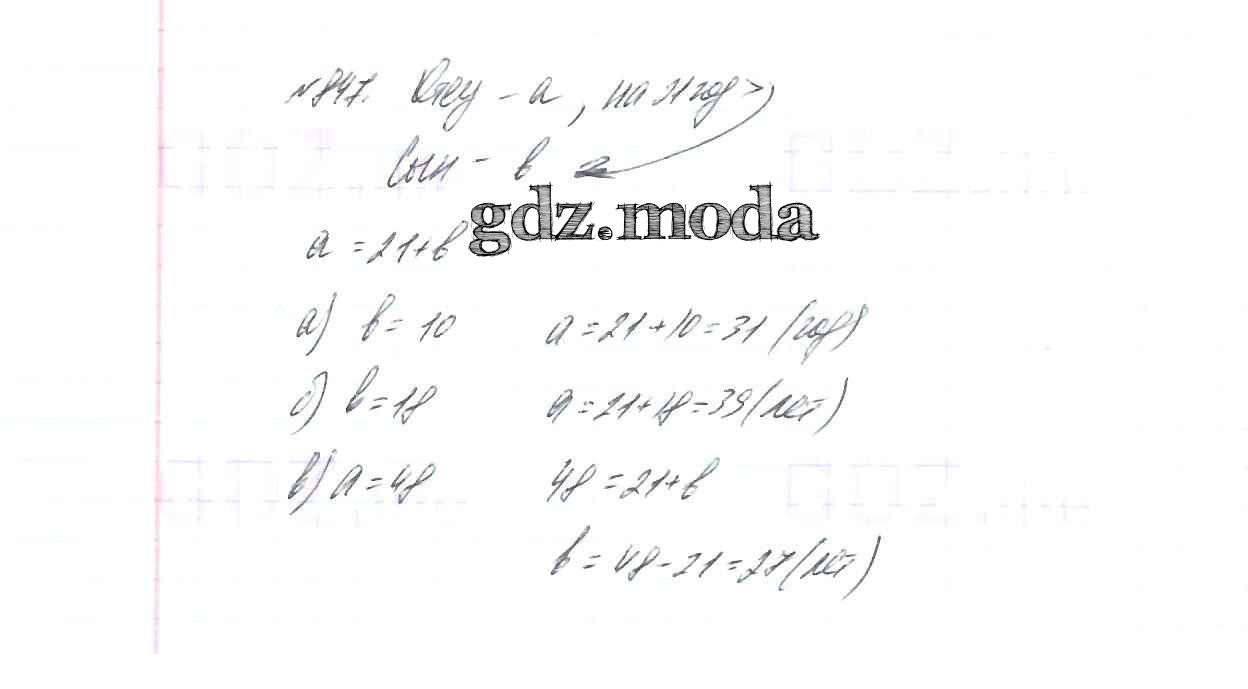 №847. Отец – а, на 21 год >
Сын – в
gdz.moda
а = 21+в
а) в = 10 а = 21 + 10 = 31 (год)
б) в = 18 а = 21 + 18 = 39 (лет)
в) а = 48 48 = 21+в
в = 48 - 21 = 27 (лет)